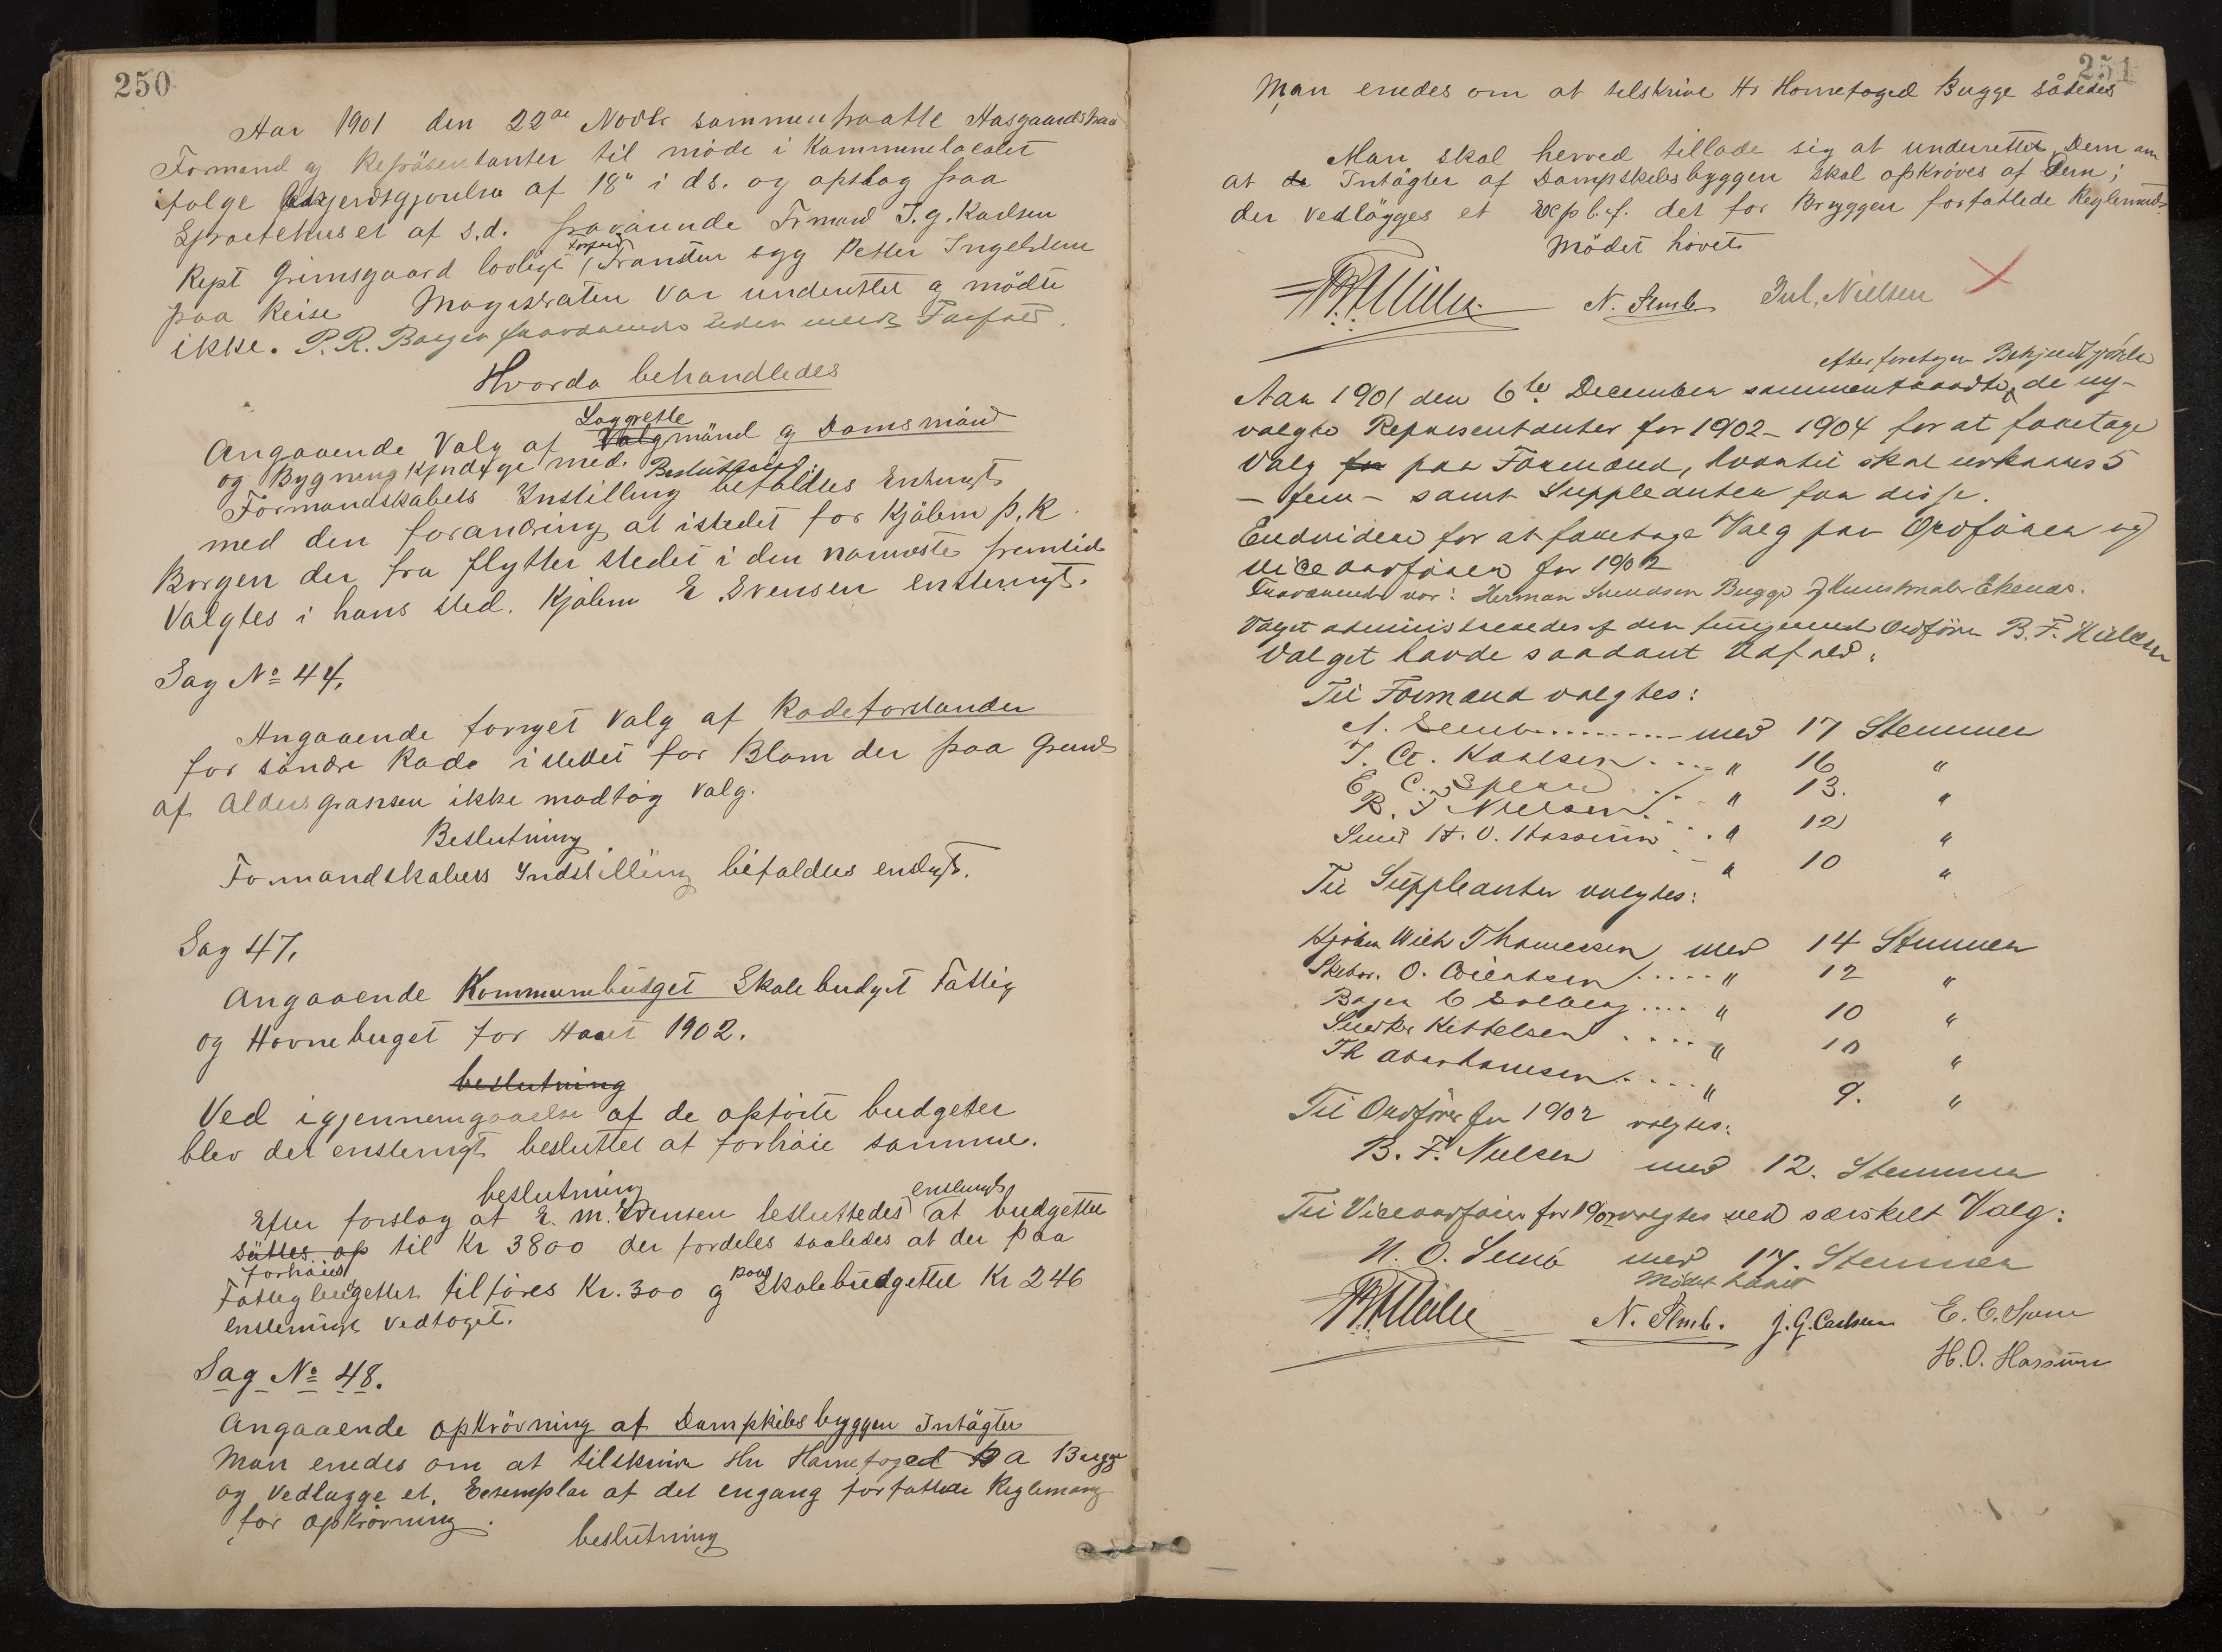 250
Aar 1901 den 22de Novbr sammentraatte Aasgaardstran
Formend og Repräsentanter til möde i Kommunelocalet
ifölge Bekjendtgjörelse af 18" i ds. og opslag paa
Spröitehuset af s.d. fraværende Frmand I. G. Karlsen
Rept Grimsgaard lovligt Forfald Frantsen syg Petter Ingebretsen
paa Reise Magistraten var underettet og mödte
ikke. P. R. Borgen fraværende uden meldt Forfald.
Hvorda behandledes
Lagrette
Angaaende Valg af Valgmänd og Domsmänd
og Bygningskyndige med. Beslutning
Formandskabets Instilling bifaldtes Enstemigt
med den forandring at istedet for Kjöbm P. R.
Borgen der fra flytter stedet i den nærmeste fremtid
Valgtes i hans sted. Kjöbm E Evensen enstemigt.
Sag No 44,
Angaaende fornyet Valg af Rodeforstander
for söndre Rode istedet for Blom der paa Grund
af Aldersgransen ikke modtog Valg.
Beslutning
Formandskabets Indstilling bifaldtes enstgt.
Sag 47,
Angaaende Kommunebudget Skolebudget Fattig
og Havnebuget for Aaret 1902.
beslutning
Ved igjennemgaaelse af de opförte budgeter
blev det enstemigt besluttet at forhöie samme.
beslutning
Efter forslag af E. M. Evensen besluttedes enstemigt at budgettet
sättes op til Kr 3800 der fordeles saaledes at der paa
forhöies
Fattigbudgettet tilföres Kr. 300 og paa Skolebudgettet Kr 246
enstemigt vedtaget.
Sag No 48.
Angaaende opkrövning af Dampskibsbryggen Intägter
Man enedes om at tilskrive Hr Havnefoged A Bugge
og vedlagge et Exsemplar af det engang forfattede Reglemang
for opkrövning.
beslutning
251
Man enedes om at tilskrive Hr Havnefoged Bugge således
Man skal herved tillade sig at underrette Dem om
at de Intägter af Dampskibsbryggen skal opkröves af Dem;
der vedlägges et expl. af det for Bryggen forfattede Reglemend.
Mödet hävet
N. Semb Jul, Nielsen
efter foretagen Bekjendtgjörelse
Aar 1901 den 6te December sammentraadte de ny-
valgte Representanter for 1902 – 1904 for at foretage
Valg for paa Formænd, hvortil skal udkaares 5
– fem – samt Suppleanter for disse.
Endvidere for at foretage Valg paa Ordförer og
viceordförer for 1902
Fraværende var: Herman Svendsen Bugge og Kunstmaler Ekenæs.
Valget administreredes af den fungerende Ordförer B. F. Nielsen
Valget havde saadant Udfald:
Til Formænd valgtes:
N. Semb .......... med 17 Stemmer
I. G. Karlsen .... " 16 "
E. C. Sperre .... " 13. "
B. F Nielsen .... " 12 "
Smed H. O. Hassum .. " 10 "
Til Suppleanter valgtes:
Kjöbm Wilh Thomessen med 14 Stemmer
Skibsr. O. Eilertsen ..... " 12 "
Bager C Solberg .... " 10 "
Snedker Kittelsen .... " 10 "
Th Abrahamsen .... " 9. "
Til Ordförer for 1902 valgtes:
B. F. Nielsen med 12. Stemmer
Til Viceordförer for 1902 valgtes ved særskilt Valg:
N. O. Semb med 17. Stemmer
Mödet hævet
N. Semb. J. G. Carlsen E. C. Sperre
H. O. Hassum